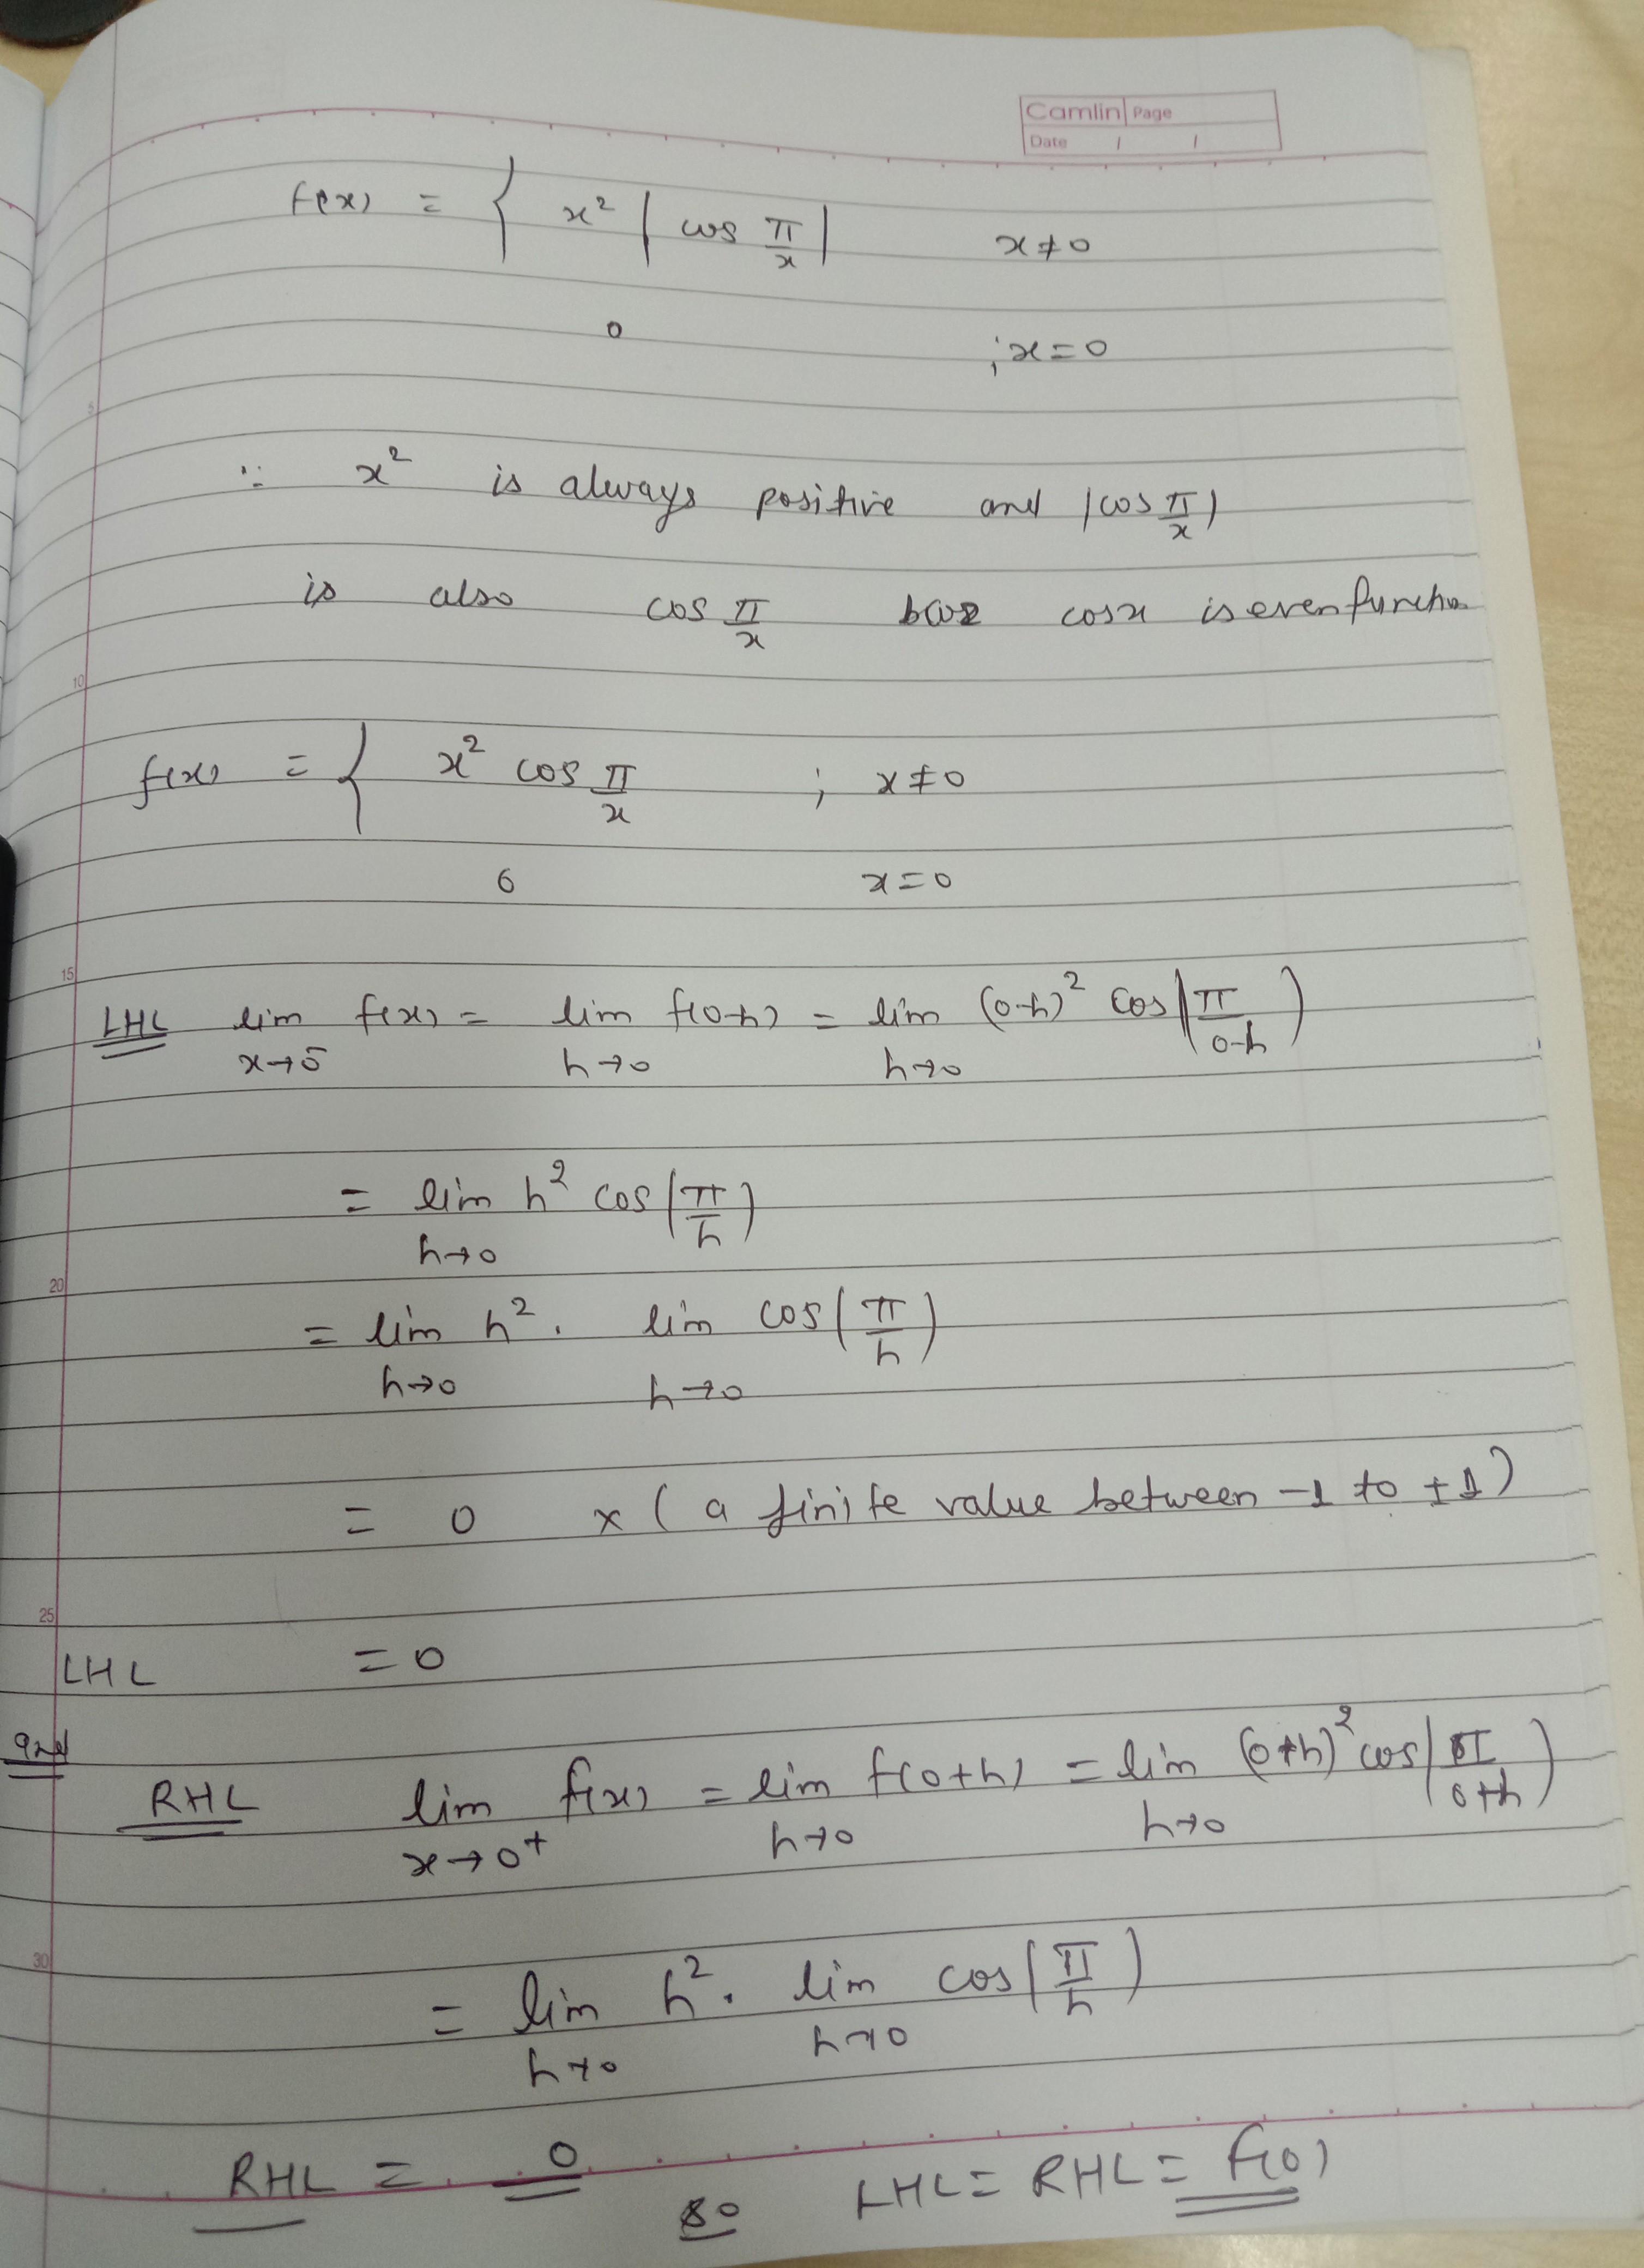 Camlin Page
Date / /
f(x) = { x² | cos π/x | x ≠ 0
0 ; x = 0
5
∵ x² is always positive and |cos π/x|
is also cos π/x bcoz cosx is even function
10
f(x) = { x² cos π/x ; x ≠ 0
0 x = 0
15
LHL lim x→0⁻ f(x) = lim h→0 f(0-h) = lim h→0 (0-h)² cos(π/0-h)
= lim h→0 h² cos(π/h)
20
= lim h→0 h² . lim h→0 cos(π/h)
= 0 x ( a finite value between -1 to +1)
25
LHL = 0
and
RHL lim x→0⁺ f(x) = lim h→0 f(0+h) = lim h→0 (0+h)² cos(π/0+h)
30
= lim h→0 h² . lim h→0 cos(π/h)
RHL = 0 so LHL = RHL = f(0)